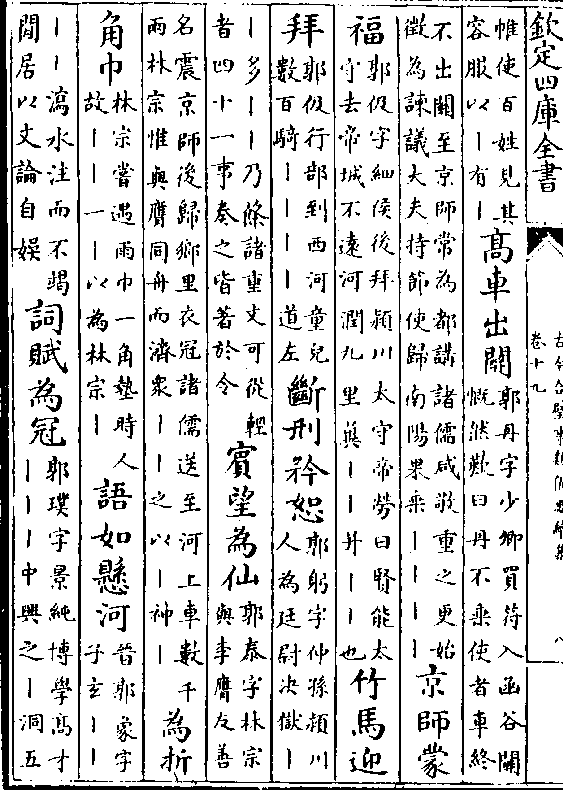 欽定四庫全書
卷十九
八
帷使百姓見其
容服以丨有丨
高車出關
郭丹字少卿買符入函谷關
慨然歎曰丹不乘使者車終
不出關至京師常為都講諸儒咸敬重之更始
徵為諫議大夫持節使歸南陽果乘丨丨丨丨
京師蒙
福
郭伋字細侯後拜潁川太守帝勞曰賢能太
守去帝城不遠河潤九里冀丨丨并丨丨也
竹馬迎
拜
郭伋行部到西河童兒
數百騎丨丨丨丨道左
斷刑矜恕
郭躬字仲孫潁川
人為廷尉决獄丨
丨多丨丨乃條諸重文可從輕
者四十一事奏之皆著於令
賓望為仙
郭泰字林宗
與李膺友善
名震京師後歸鄉里衣冠諸儒送至河上車數千
兩林宗惟與膺同舟而濟衆丨丨之以丨神丨
為折
角巾
林宗嘗遇雨巾一角墊時人
故丨丨一丨以為林宗丨
語如懸河
晉郭象字
子玄丨丨
丨丨瀉水注而不竭
閒居以文論自娛
詞賦為冠
郭璞字景純博學高才
丨丨丨丨中興之丨洞五